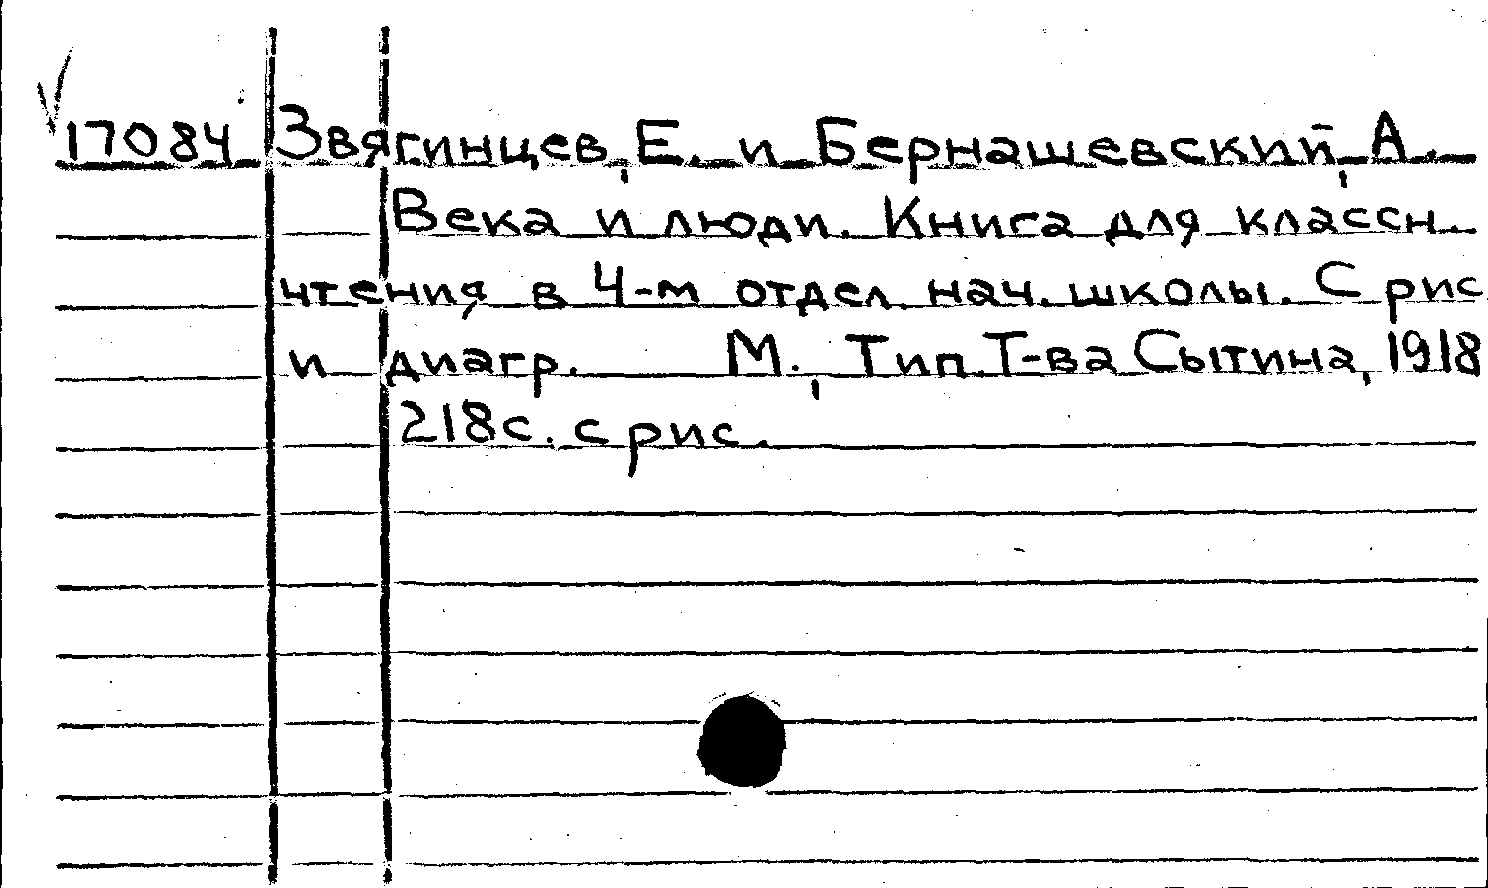 17084 Звягинцев, Е. и Бернашевский, А.
Века и люди. Книга для классн.
чтения в 4-м отдел. нач. школы. С рис
и диагр. М., Тип. Т-ва Сытина, 1918
218с. с рис.